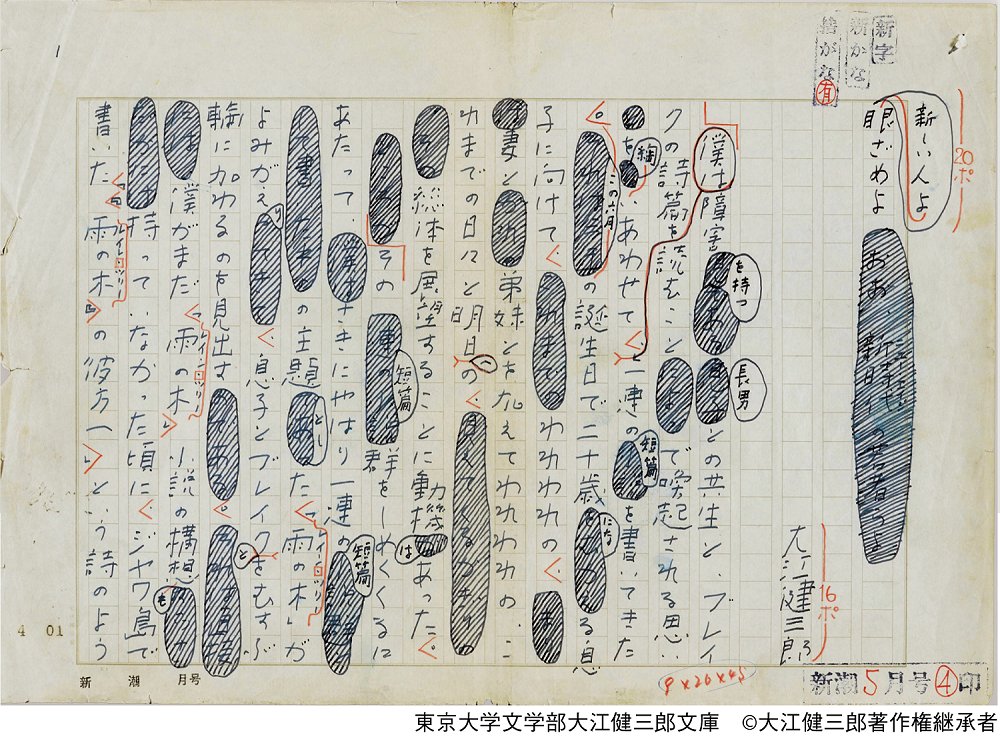 新字
新かな
捨がな 有
20ポ
新しい人よ
眼ざめよ
大江健三郎
16ポ
僕は障害を持つ長男との共生と、ブレイ
クの詩篇を読むことで喚起される思い
を綯いあわせて、一連の短篇を書いてきた
。この六月の誕生日で二十歳になる息
子に向けて、われわれの、
妻と弟妹とを加えてわれわれの、こ
れまでの日々と明日の、
総体を展望することに動機はあった。
その短篇群をしめくくるに
あたって、さきにやはり一連の短篇
の主題とした「雨の木」が
レイン・ツリー
よみがえり、息子とブレイクをむすぶ
輪に加わるのを見出す。と
僕がまだ「雨の木」小説の構想も
レイン・ツリー
持っていなかった頃に、ジャワ島で
書いた《「雨の木」の彼方へ》という詩のよう
レイン・ツリー
1
4 01
新潮 月号
新潮5月号④印
東京大学文学部大江健三郎文庫 ©大江健三郎著作権継承者